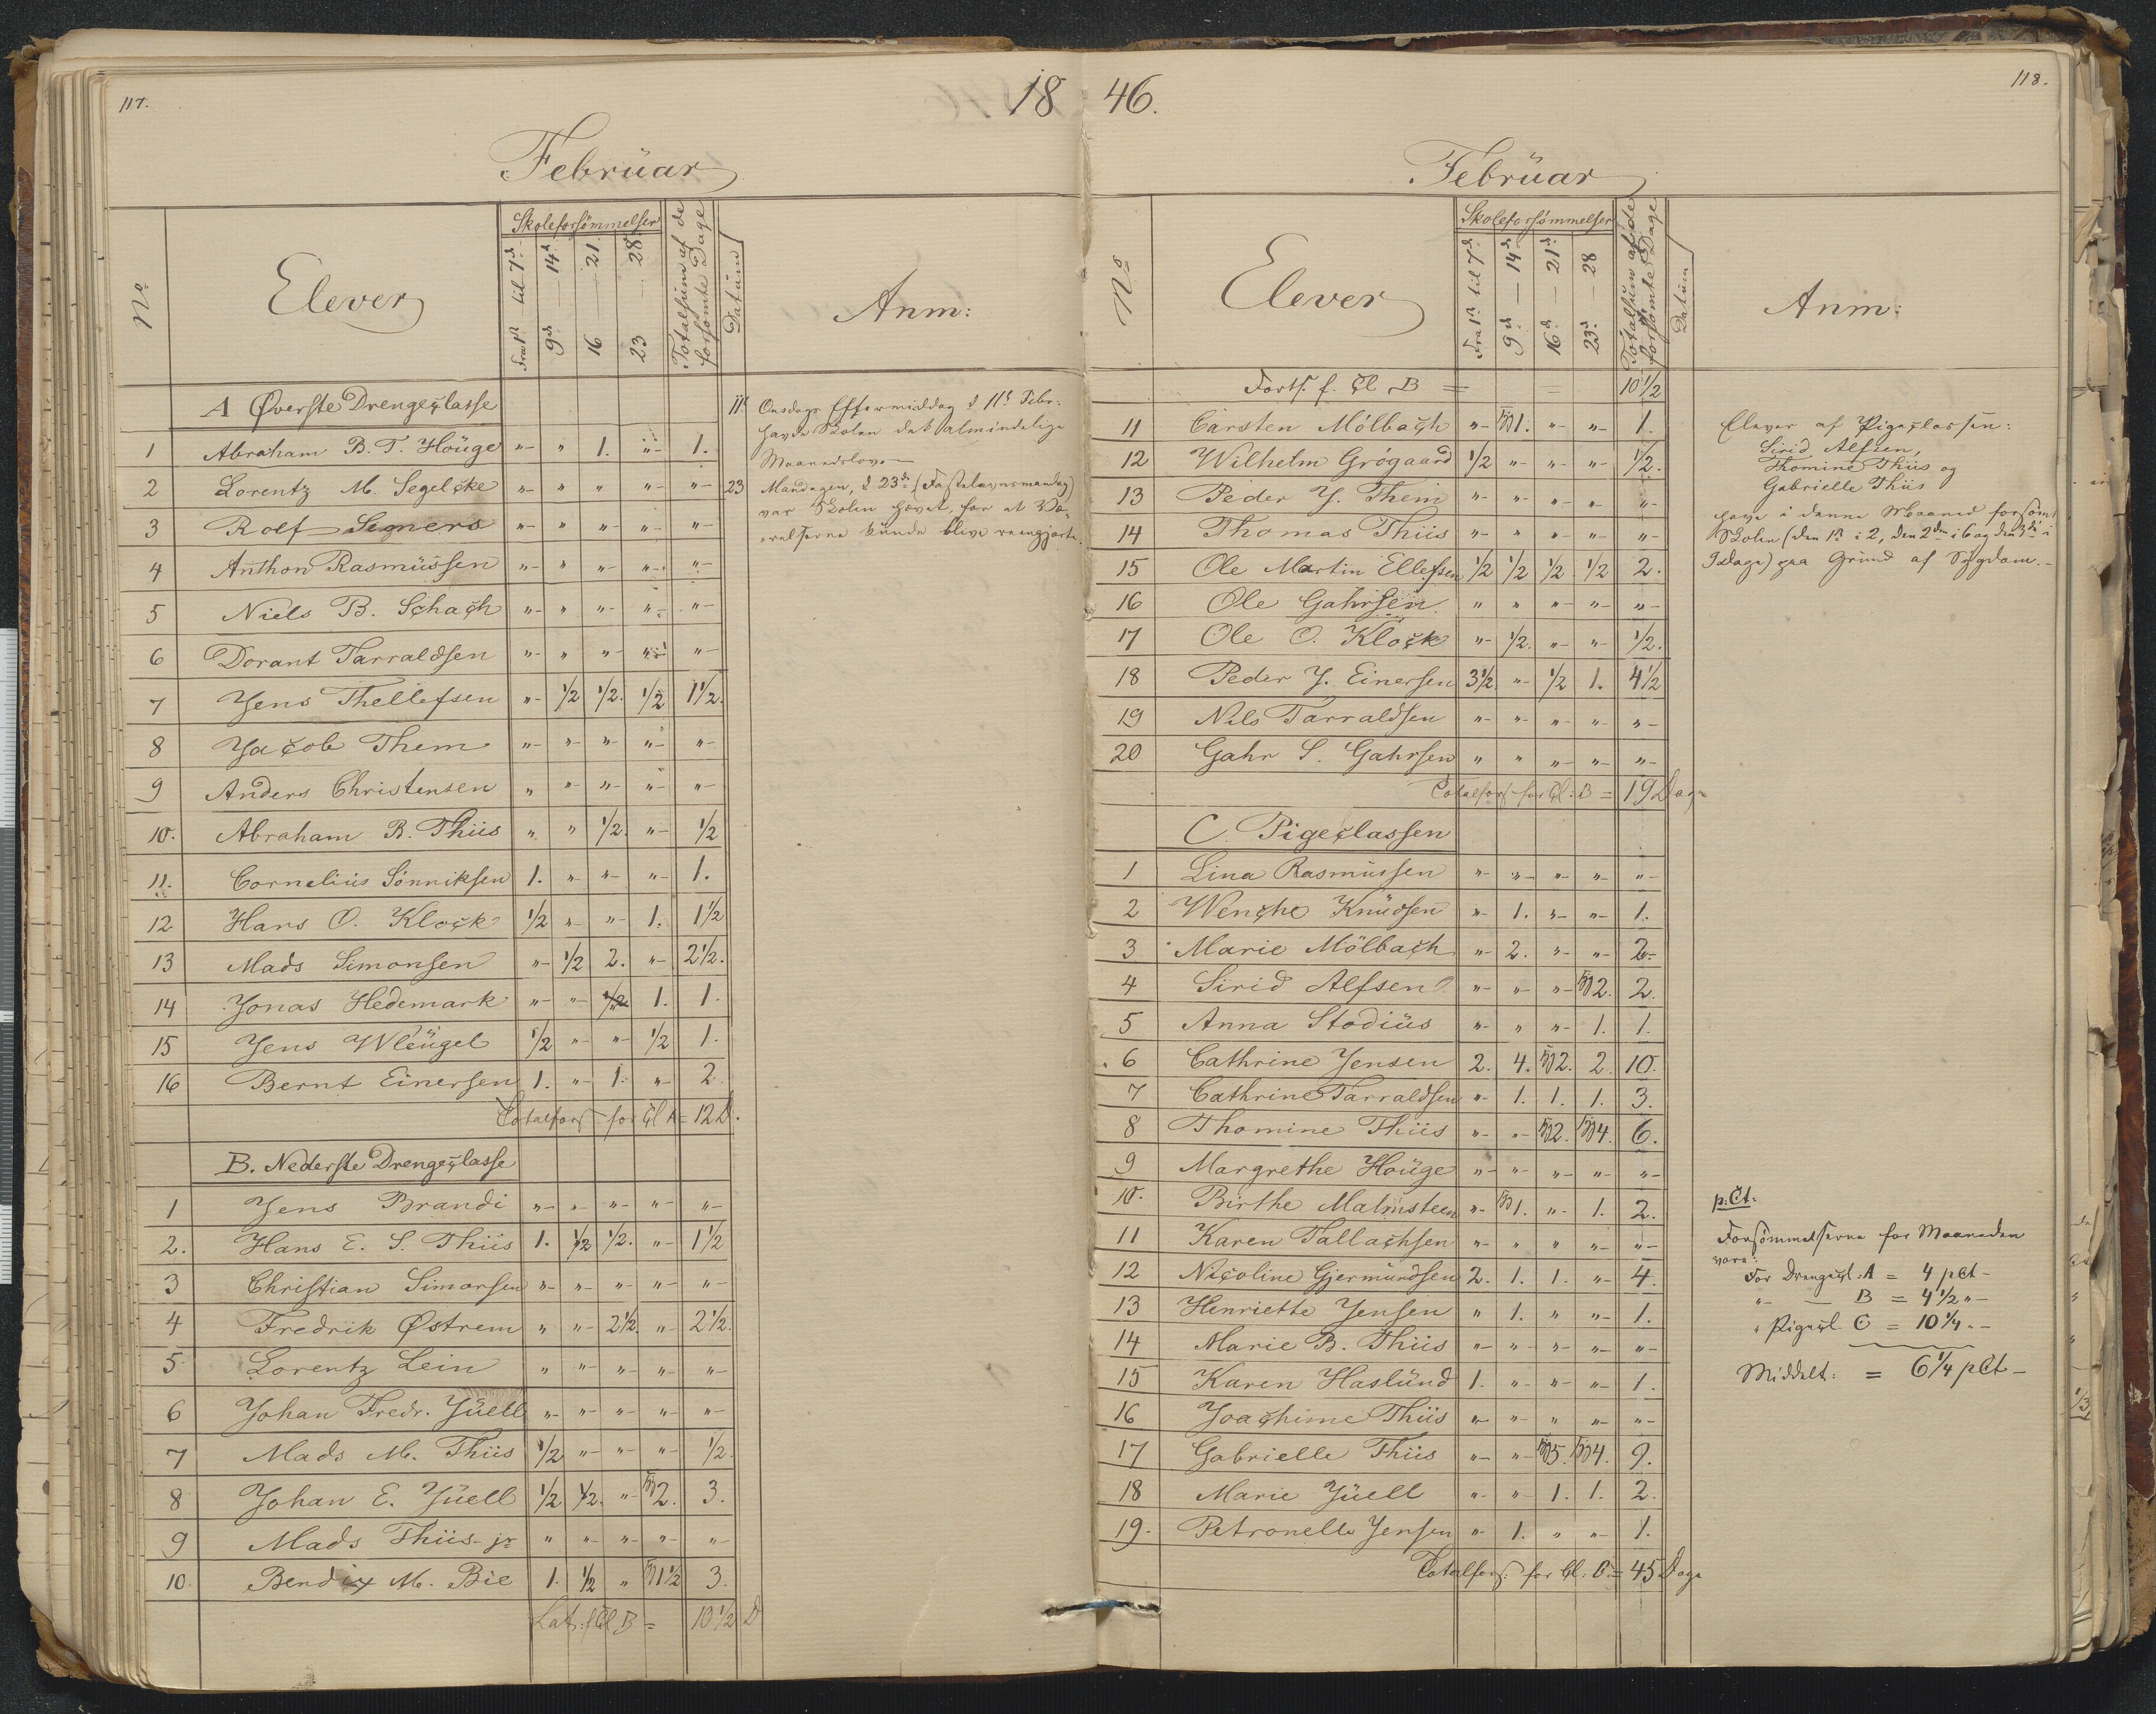 117.
18
Februar
No
Elever
Skoleforsömmelser
Fra 1st til 7d
9d — 14d
16 — 21
23 — 28
Totalsum af de forsömte Dage
Datum
Anm:
A Øverste Drengeclasse
1 Abraham B. T. Houge "- " 1. "- 1.
2 Lorentz M. Segelcke "- " " "- "-
3 Rolf Semers "- " "- "- "-
4 Anthon Rasmussen "- " "- "- "-
5 Niels B. Schach "- " "- "- "-
6 Dorant Tarraldsen "- " "- "- "-
7 Jens Thellefsen "- 1/2 1/2. 1/2 1 1/2.
8 Jacob Them "- "- "- "- "-
9 Anders Christensen " "- "- "- "-
10. Abraham B. Thiis " " 1/2. "- 1/2
11. Cornelius Sönniksen 1. "- "- "- 1.
12 Hans O. Klock 1/2 "- "- 1. 1 1/2
13 Mads Simonsen "- 1/2 2. "- 2 1/2.
14 Jonas Hedemark "- "- 1/2 1. 1.
15 Jens Wleugel 1/2 "- "- 1/2 1.
16 Bernt Einersen 1. "- 1. "- 2
Totalfors for Cl A = 12 D.
B. Nederste Drengeclasse
1 Jens Brandi "- "- "- "- "-
2. Hans E. S. Thiis 1. 1/2 1/2. "- 1 1/2
3 Christian Simonsen "- "- "- "- "-
4 Fredrik Østrem " "- 2 1/2. "- 2 1/2.
5 Lorentz Lein " "- "- "- "-
6 Johan Fredr. Juell "- "- "- "- "-
7 Mads M. Thiis 1/2 "- "- "- 1/2.
8 Johan E. Juell 1/2 1/2. "- 2. 3.
9 Mads Thiis jr " "- "- "- "-
10. Bendix M. Bie 1. 1/2 " 1 1/2 3.
Lat: f Cl B = 10 1/2 D
11t Onsdags Eftermiddag d 11t Febr:
havde Skolen det almindelige
Maanedslov.
23 Mandagen, d 23d (Fastelavnsmandag)
var Skolen hævet, for at Væ-
relserne kunde blive reengjorte.
46.
118.
Februar
No
Elever
Skoleforsömmelser
Fra 1st til 7d
9d — 14d
16d — 21d
23d — 28
Totalsum af de forsömte Dage
Datum
Anm:
Forts. f. Cl B = = 10 1/2
11 Carsten Mölbach "- 1. "- "- 1.
12 Wilhelm Grögaard 1/2 "- "- "- 1/2.
13 Peder J. Them "- "- "- "- "-
14 Thomas Thiis "- " "- "- "-
15 Ole Martin Ellefsen 1/2 1/2 1/2 1/2 2.
16 Ole Gahrsen " " "- "- "-
17 Ole O. Klock "- 1/2. "- "- 1/2.
18 Peder J. Einersen 3 1/2. "- 1/2 1. 4 1/2
19 Nils Tarraldsen "- "- "- "- "-
20 Gahr S. Gahrsen " " "- "- "-
Totalfors for Cl: B = 19 Dage
C Pigeclassen
1 Lina Rasmussen "- "- "- "- "-
2 Wenche Knudsen "- 1. "- "- 1.
3 Marie Mölbach "- 2. "- "- 2.
4 Sirid Alfsen "- "- "- 2. 2.
5 Anna Stodius "- " "- 1. 1.
6 Cathrine Jensen 2. 4. 2. 2 10.
7 Cathrine Tarraldsen "- 1. 1. 1. 3.
8 Thomine Thiis "- "- 2. 4. 6.
9 Margrethe Houge "- "- "- "- "-
10. Birthe Malmsteen "- 1. "- 1. 2.
11 Karen Tallachsen "- " " "- "-
12 Nicoline Gjermundsen 2. 1. 1. "- 4.
13 Henriette Jensen " 1. " "- 1.
14 Marie B. Thiis "- "- "- "- "-
15 Karen Haslund 1. "- "- "- 1.
16 Joachime Thiis "- "- " "- "-
17 Gabrielle Thiis "- "- 5. 4. 9.
18 Marie Juell "- "- 1. 1. 2.
19. Petronelle Jensen "- 1. " "- 1.
Totalfors: for Cl: C. = 45 Dage
Elever af Pigeclassen:
Sirid Alfsen,
Thomine Thiis og
Gabrielle Thiis
have i denne Maaned forsömt
Skolen (den 1st i 2, den 2den i 6 og den 3die i
9 Dage) paa Grund af Sygdom.-
p: Ct.
Forsömmelserne for Maaneden
vare:
For Drengecl: A = 4 pCt -
"- — B = 4 1/2 "-
" Pigecl. C = 10 1/4 "-
Middelt: = 6 1/4 pCt -